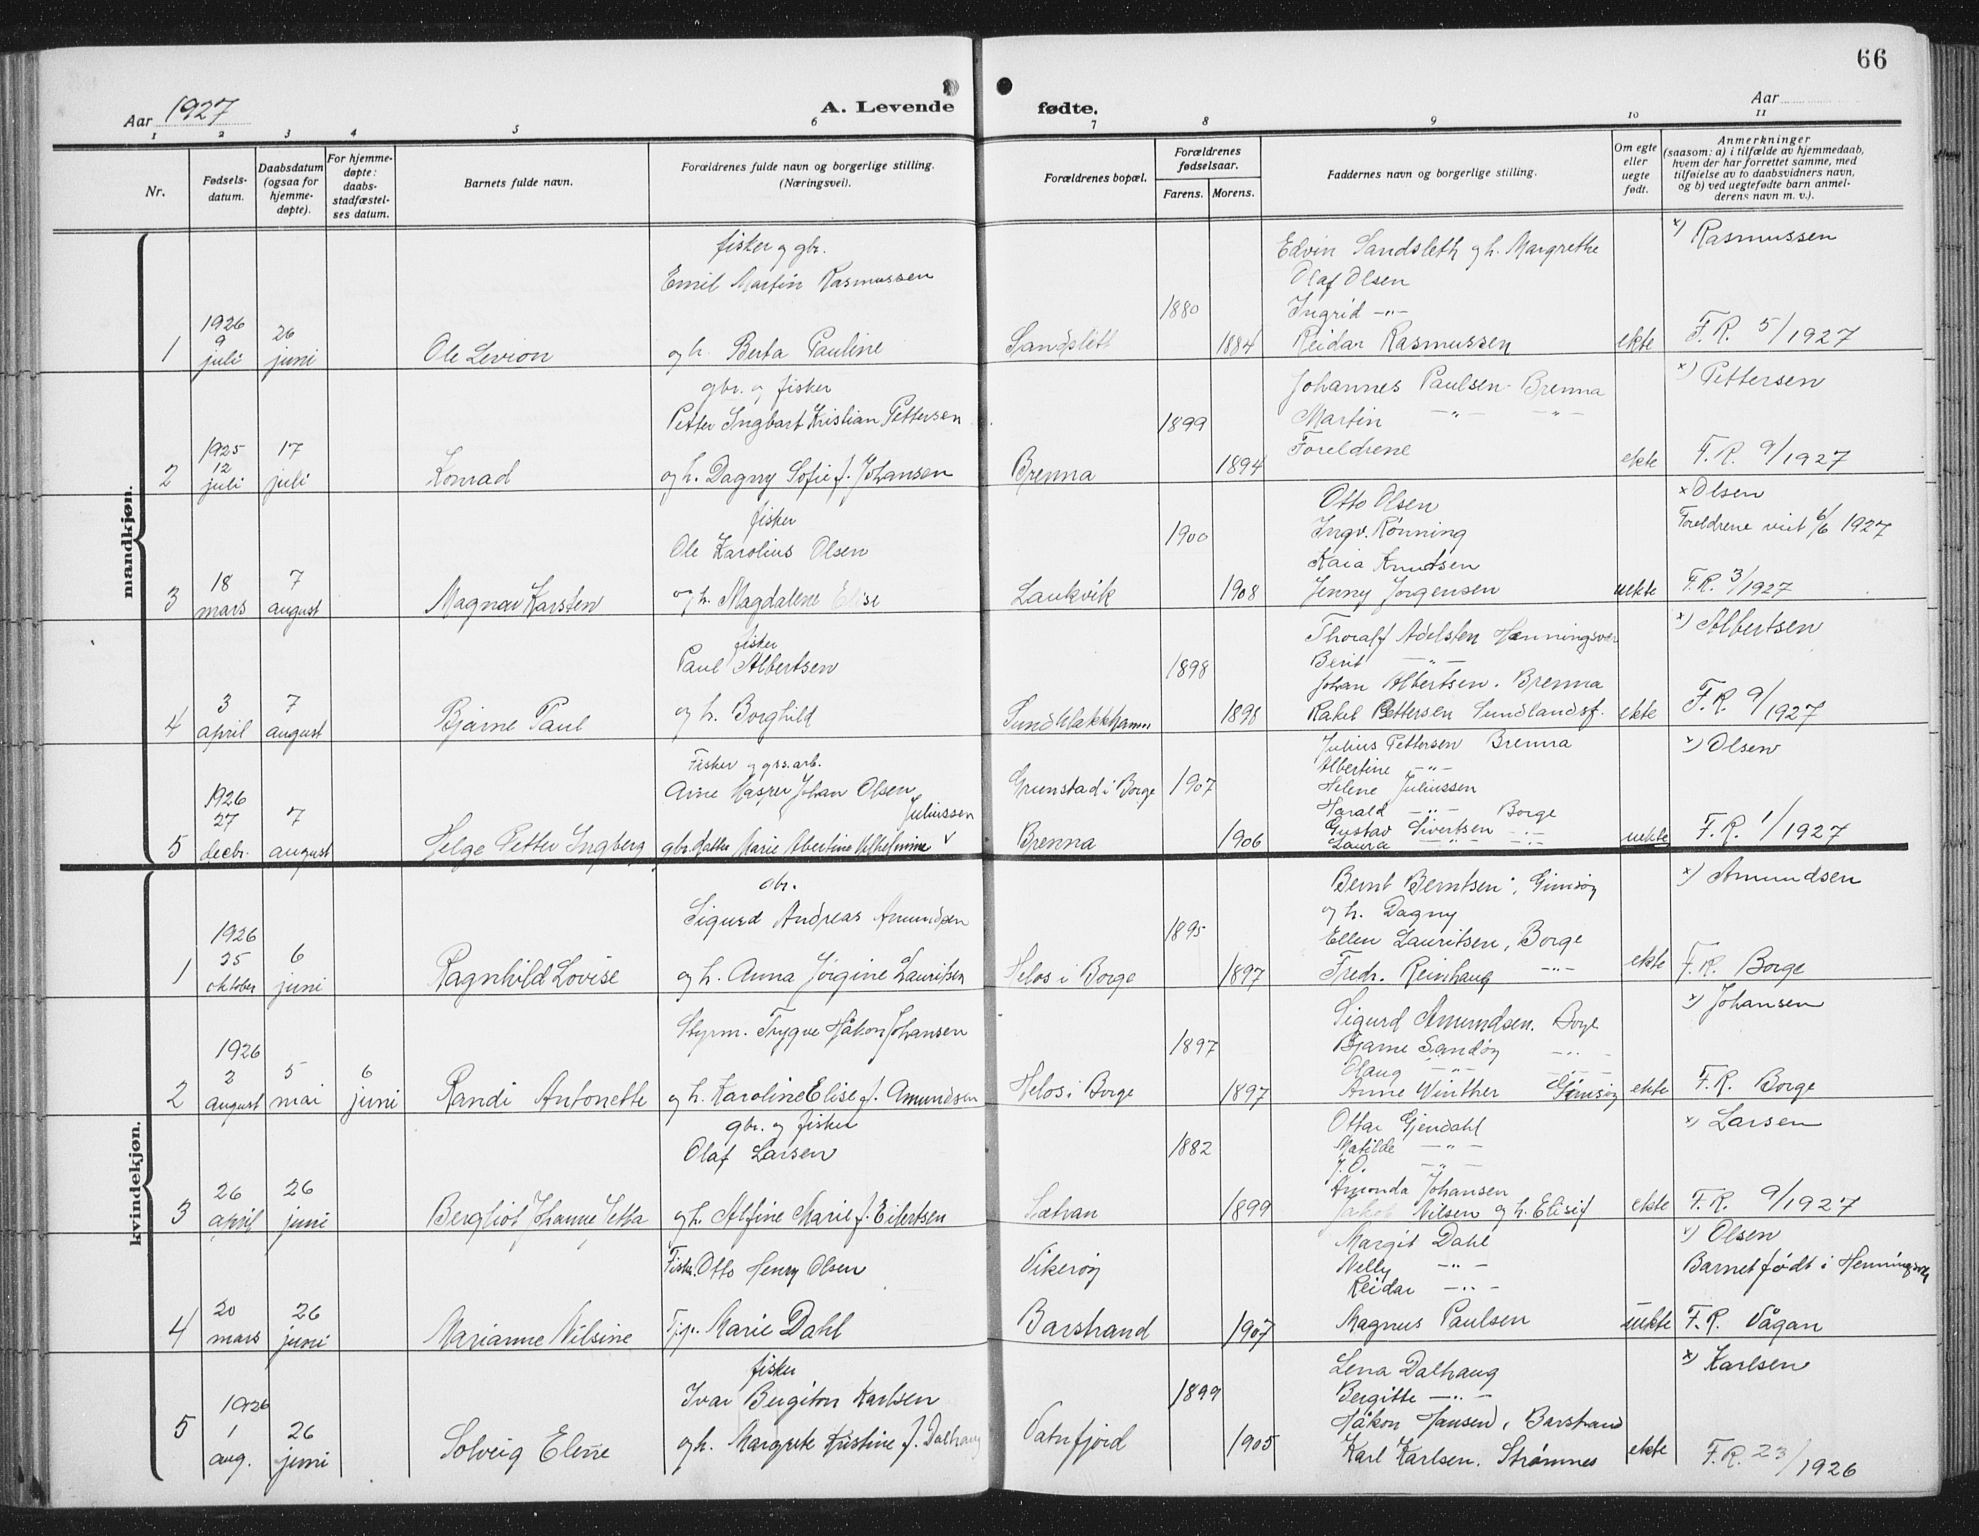 66
Aar 1927
A. Levende fødte.
Aar
1 2 3 4 5 6 7 8 9 10 11
Nr.
Fødsels-
datum.
Daabsdatum
(ogsaa for
hjemme-
døpte).
For hjemme-
døpte:
daabs-
stadfæstel-
ses datum.
Barnets fulde navn.
Forældrenes fulde navn og borgerlige stilling.
(Næringsvei).
Forældrenes bopæl.
Forældrenes
fødselsaar.
Farens. Morens.
Faddernes navn og borgerlige stilling.
Om egte
eller
uegte
født.
Anmerkninger
(saasom: a) i tilfælde av hjemmedaab,
hvem der har forrettet samme, med
tilføielse av to daabsvidners navn,
og b) ved uegtefødte barn anmel-
derens navn m. v.).
mandkjøn.
1
1926
9
juli
26
juni
Ole Levion
fisker og gbr.
Emil Martin Rasmussen
og h. Berta Pauline
Sandslett
1880
1884
Edvin Sandsleth og h. Margrethe
Olaf Olsen
Ingrid -"-
Reidar Rasmussen
ekte
x) Rasmussen
F.R. 5/1927
2
1925
12
juli
17
juli
Konrad
gbr. og fisker
Petter Ingbart Kristian Pettersen
og h. Dagny Sofie f. Johansen
Brenna
1899
1894
Johannes Paulsen Brenna
Martin -"- -"-
Foreldrene
ekte
x) Pettersen
F.R. 9/1927
3
18
mars
7
august
Magnar Karsten
fisker
Ole Karolius Olsen
og h. Magdalene Elise
Laukvik
1900
1908
Otto Olsen
Ingv. Rønning
Kaia Knutsen
Jenny Jørgensen
uekte
x Olsen
Foreldrene viet 6/6 1927
F.R. 3/1927
4
3
april
7
august
Bjarne Paul
fisker
Paul Albertsen
og h. Borghild
Sundklakkhamn
1898
1898
Thoralf Adelsten Henningsvær
Berit -"-
Johan Albertsen. Brenna
Rakel Pettersen Sundlandsf.
ekte
x) Albertsen
F.R. 9/1927
5
1926
27
decbr.
7
august
Helge Petter Ingberg
Fisker og grs.arb.
Arne Kasper Johan Olsen
Juliussen
gbr.datter Marie Abertine Vilhelmine v
Grunstad i Borge
Brenna
1907
1906
Julius Pettersen Brenna
Albertine -"-
Helene Juliussen
Harald -"- Borge
Gustav Sivertsen -"-
Laura -"- -"-
uekte
x) Olsen
F.R. 1/1927
kvindekjøn.
1
1926
25
oktober
6
juni
Ragnhild Lovise
gbr.
Sigurd Andreas Amundsen
og h. Anna Jørgine Lauritsen
Helos i Borge
1895
1897
Bernt Berntsen, Gimsøy
og h. Dagny
Ellen Lauritsen, Borge
Fredr. Reinhaug -"-
ekte
x) Amundsen
F.R. Borge
2
1926
2
august
5
mai
6
juni
Randi Antonette
Styrm. Trygve Håkon Johansen
og h. Karoline Elise f. Amundsen
Helos i Borge
1897
1897
Sigurd Amundsen. Borge
Bjarne Sandøy -"-
Olaug -"- -"-
Anne Winther Gimsøy
ekte
x) Johansen
F.R. Borge
3
26
april
26
juni
Bergliot Johanne Jetta
gbr. og fisker
Olaf Larsen
og h. Alfine Marie f. Eilertsen
Sætran
1882
1899
Ottar Gjendahl
Matilde -"-
J.O. -"-
Amonda Johansen
Jakob Nilsen og h. Elisif
ekte
x) Larsen
F.R. 9/1927
4
20
mars
26
juni
Marianne Nilsine
Fisk. Otto Henry Olsen
Tjp. Marie Dahl
Vikerøy
Barstrand
1907
Margit Dahl
Nelly -"-
Reidar -"-
Magnus Paulsen
uekte
x) Olsen
Barnet født i Henningsvær
F.R. Vågan
5
1926
1
aug.
26
juni
Solveig Elene
fisker
Ivar Bergiton Karlsen
og h. Margrete Kristine f. Dalhaug
Vatnfjord
1899
1905
Lena Dalhaug
Bergitte -"-
Håkon Hansen, Barstrand
Karl Karlsen. Strømnes
ekte
x) Karlsen
F.R. 23/1926